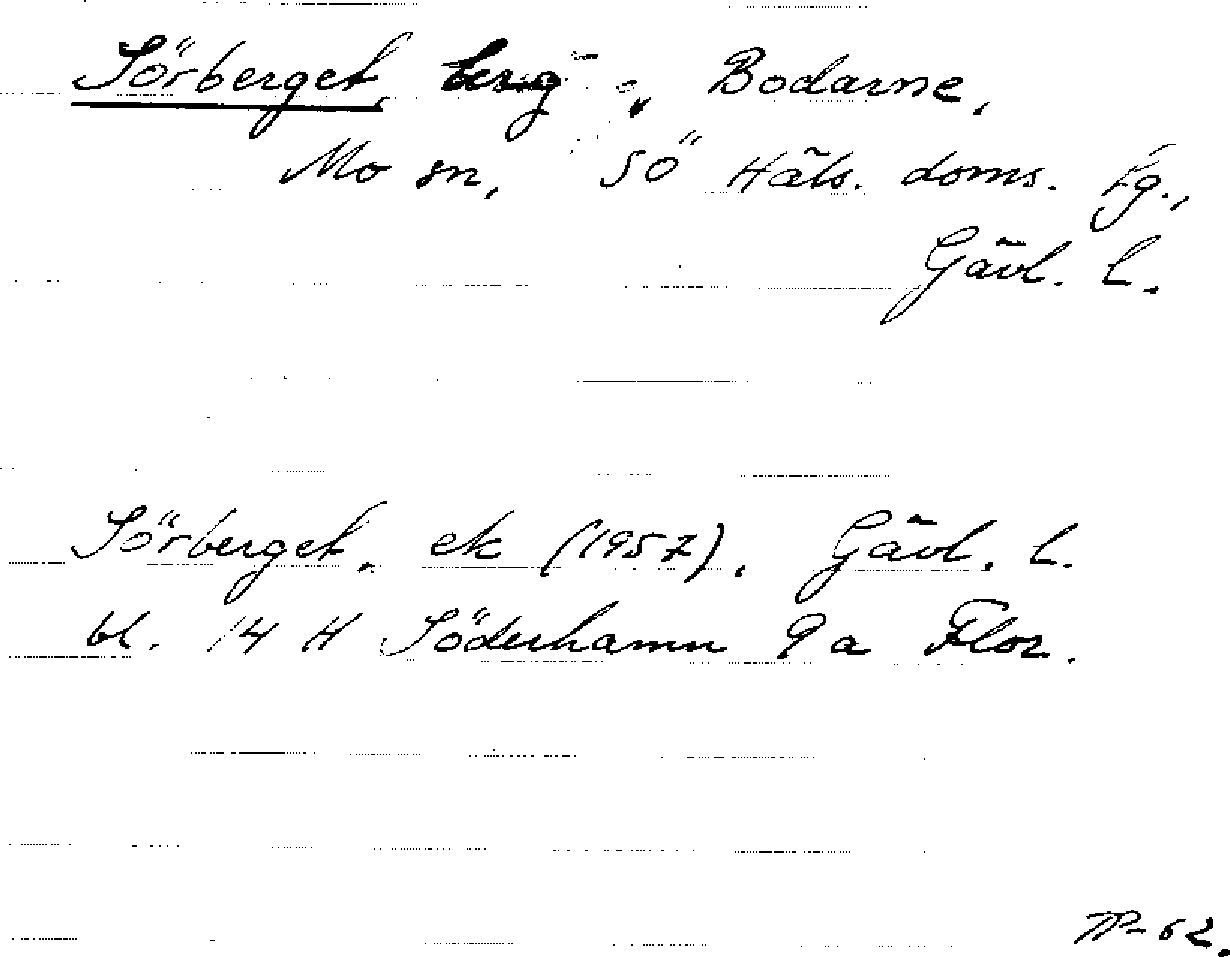 Sörberget, berg, Bodarne,
Mo sn, SÖ Häls. doms. fg.,
Gävl. l.
Sörberget, ek (1957), Gävl. l.
bl. 14 H Söderhamn 9 a Flor.
-62.